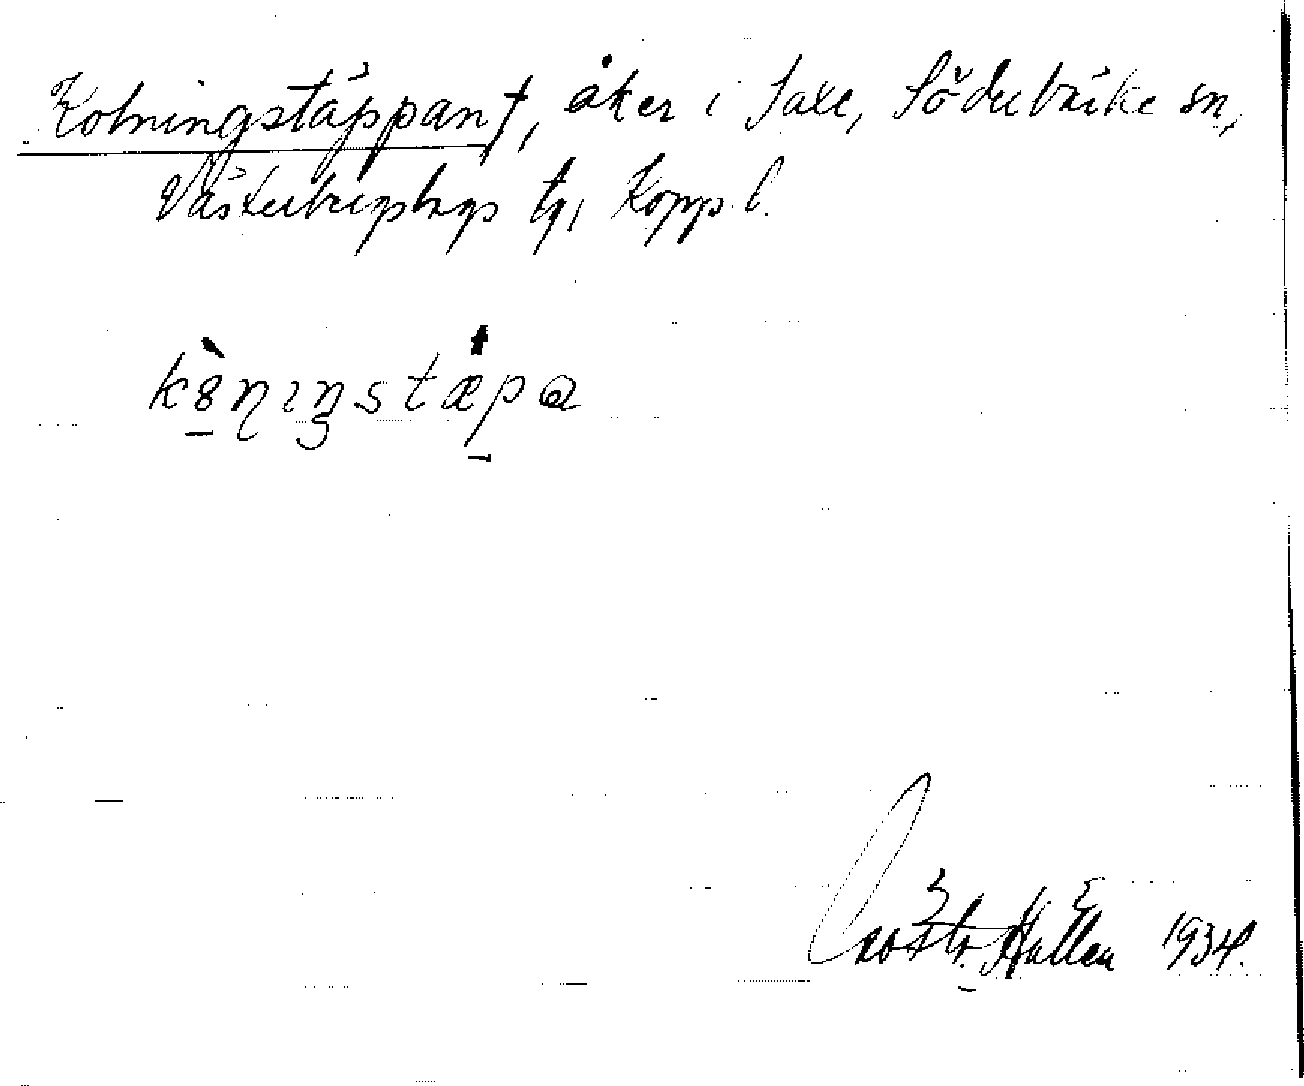 Kolningstäppan†, åker i Saxe, Söderbärke sn,
Västerbergslags tg, Kopp. l.
kȣ̀ṇıŋstæpa
Hallén 1934.